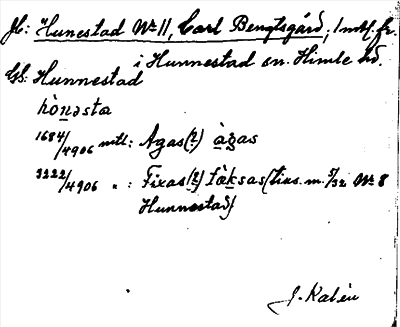 Jb: Hunestad No 11, Carl Bengtsgård, 1 mtl. fr.
i Hunnestad sn. Himle hd.
Gb: Hunnestad
hònəsta
1684/4906 mtl: Agas(?) àgas
3222/4906 " : Fixas(?) fàksas (tills. m. 5/32 No 8
Hunnestad)
J. Kalén